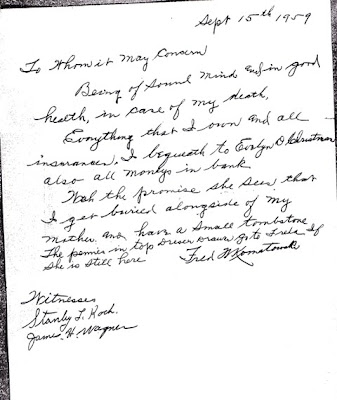 Sept 15th 1959
To Whom it May Concern
Being of Sound Mind and in good
health, in case of my death,
Everything that I own and all
insurances, I bequeath to Evelyn D. Christman
also all moneys in bank
With the promise she sees, that
I get buried alongside of my
Mother and have a small tombstone
The pennies in top Dresser Drawer go to Freda If
She is still here
Fred W
Witnesses
Stanly L. Koch.
James H. Wagner